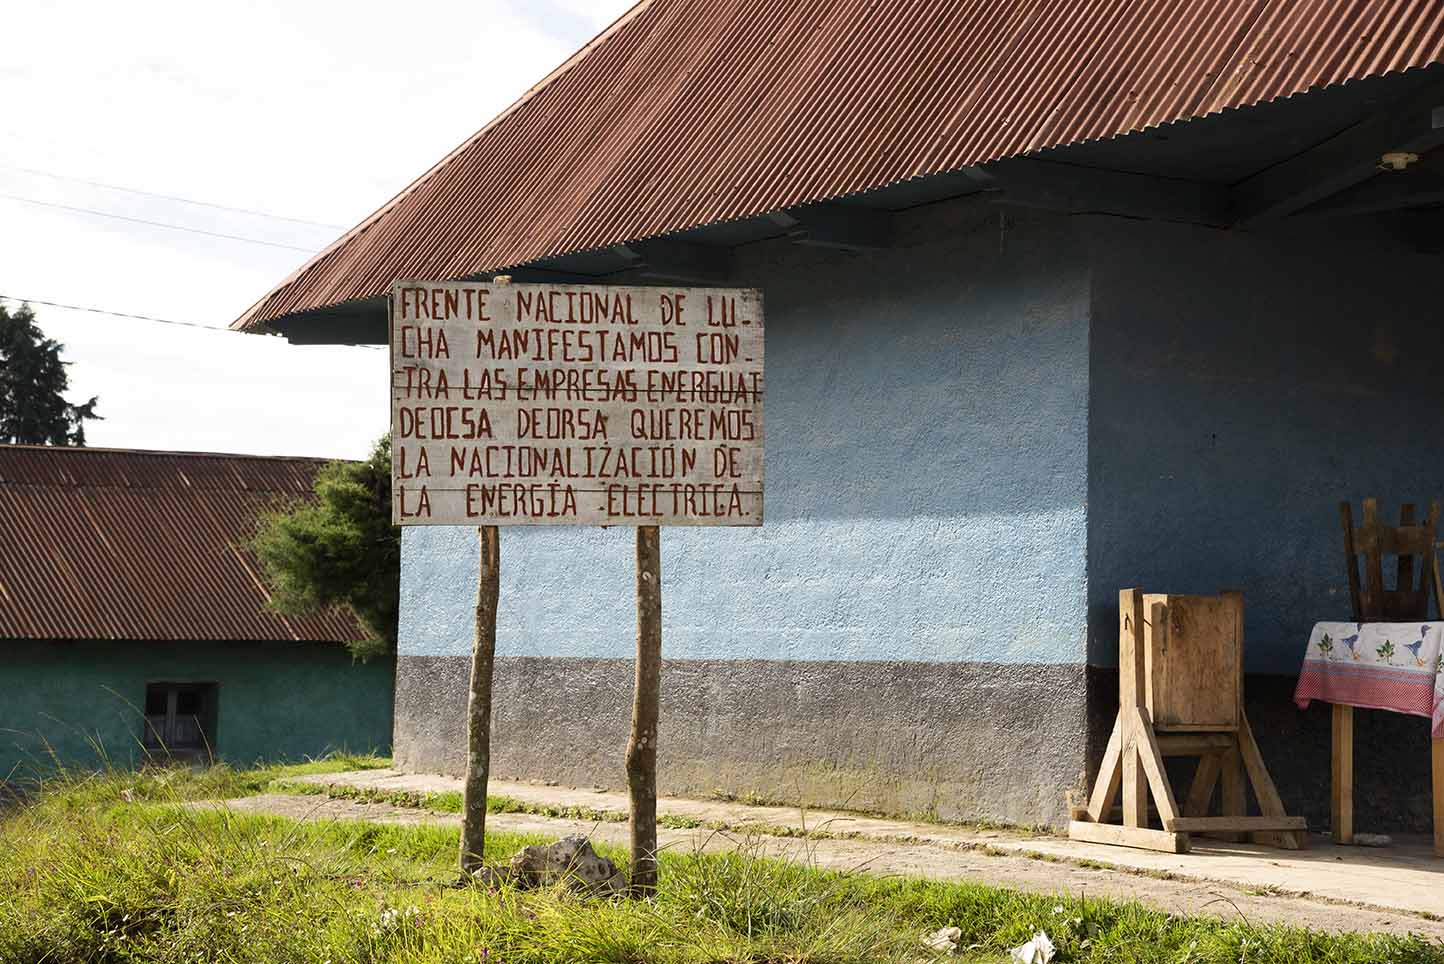 FRENTE NACIONAL DE LU-
CHA MANIFESTAMOS CON-
TRA LAS EMPRESAS ENERGUAT
DEOCSA DEORSA QUEREMOS
LA NACIONALIZACIÓN DE
LA ENERGÍA ELECTRICA.